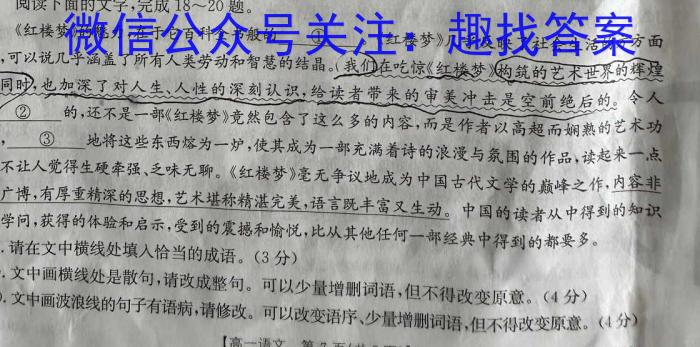 阅读下面的文字,完成18~20题。
微信公众号关注:趣找答案
《红楼梦》 ① 《红楼梦》 方面
,可以说几乎涵盖了所有人类劳动和智慧的结晶。(我们在吃惊《红楼梦》构筑的艺术世界的辉煌
同时,也加深了对人生、人性的深刻认识,给读者带来的审美冲击是空前绝后的。令人
② 的,还不是一部《红楼梦》竟然包含了这么多的内容,而是作者以高超而娴熟的艺术功
, ③ 地将这些东西熔为一炉,使其成为一部充满着诗的浪漫与氛围的作品,读起来一点
不让人觉得生硬牵强、乏味无聊。《红楼梦》毫无争议地成为中国古代文学的巅峰之作,内容非
广博,有厚重精深的思想,艺术堪称精湛完美,语言既丰富又生动。中国的读者从中得到的知识
学问,获得的体验和启示,受到的震撼和愉悦,比从其他任何一部经典中得到的都要多。
.请在文中横线处填入恰当的成语。(3分)
.文中画横线处是散句,请改成整句。可以少量增删词语,但不得改变原意。(4分)
.文中画波浪线的句子有语病,请修改。可以改变语序、少量增删词语,但不得改变原意。(4分)
【高一语文 第7页